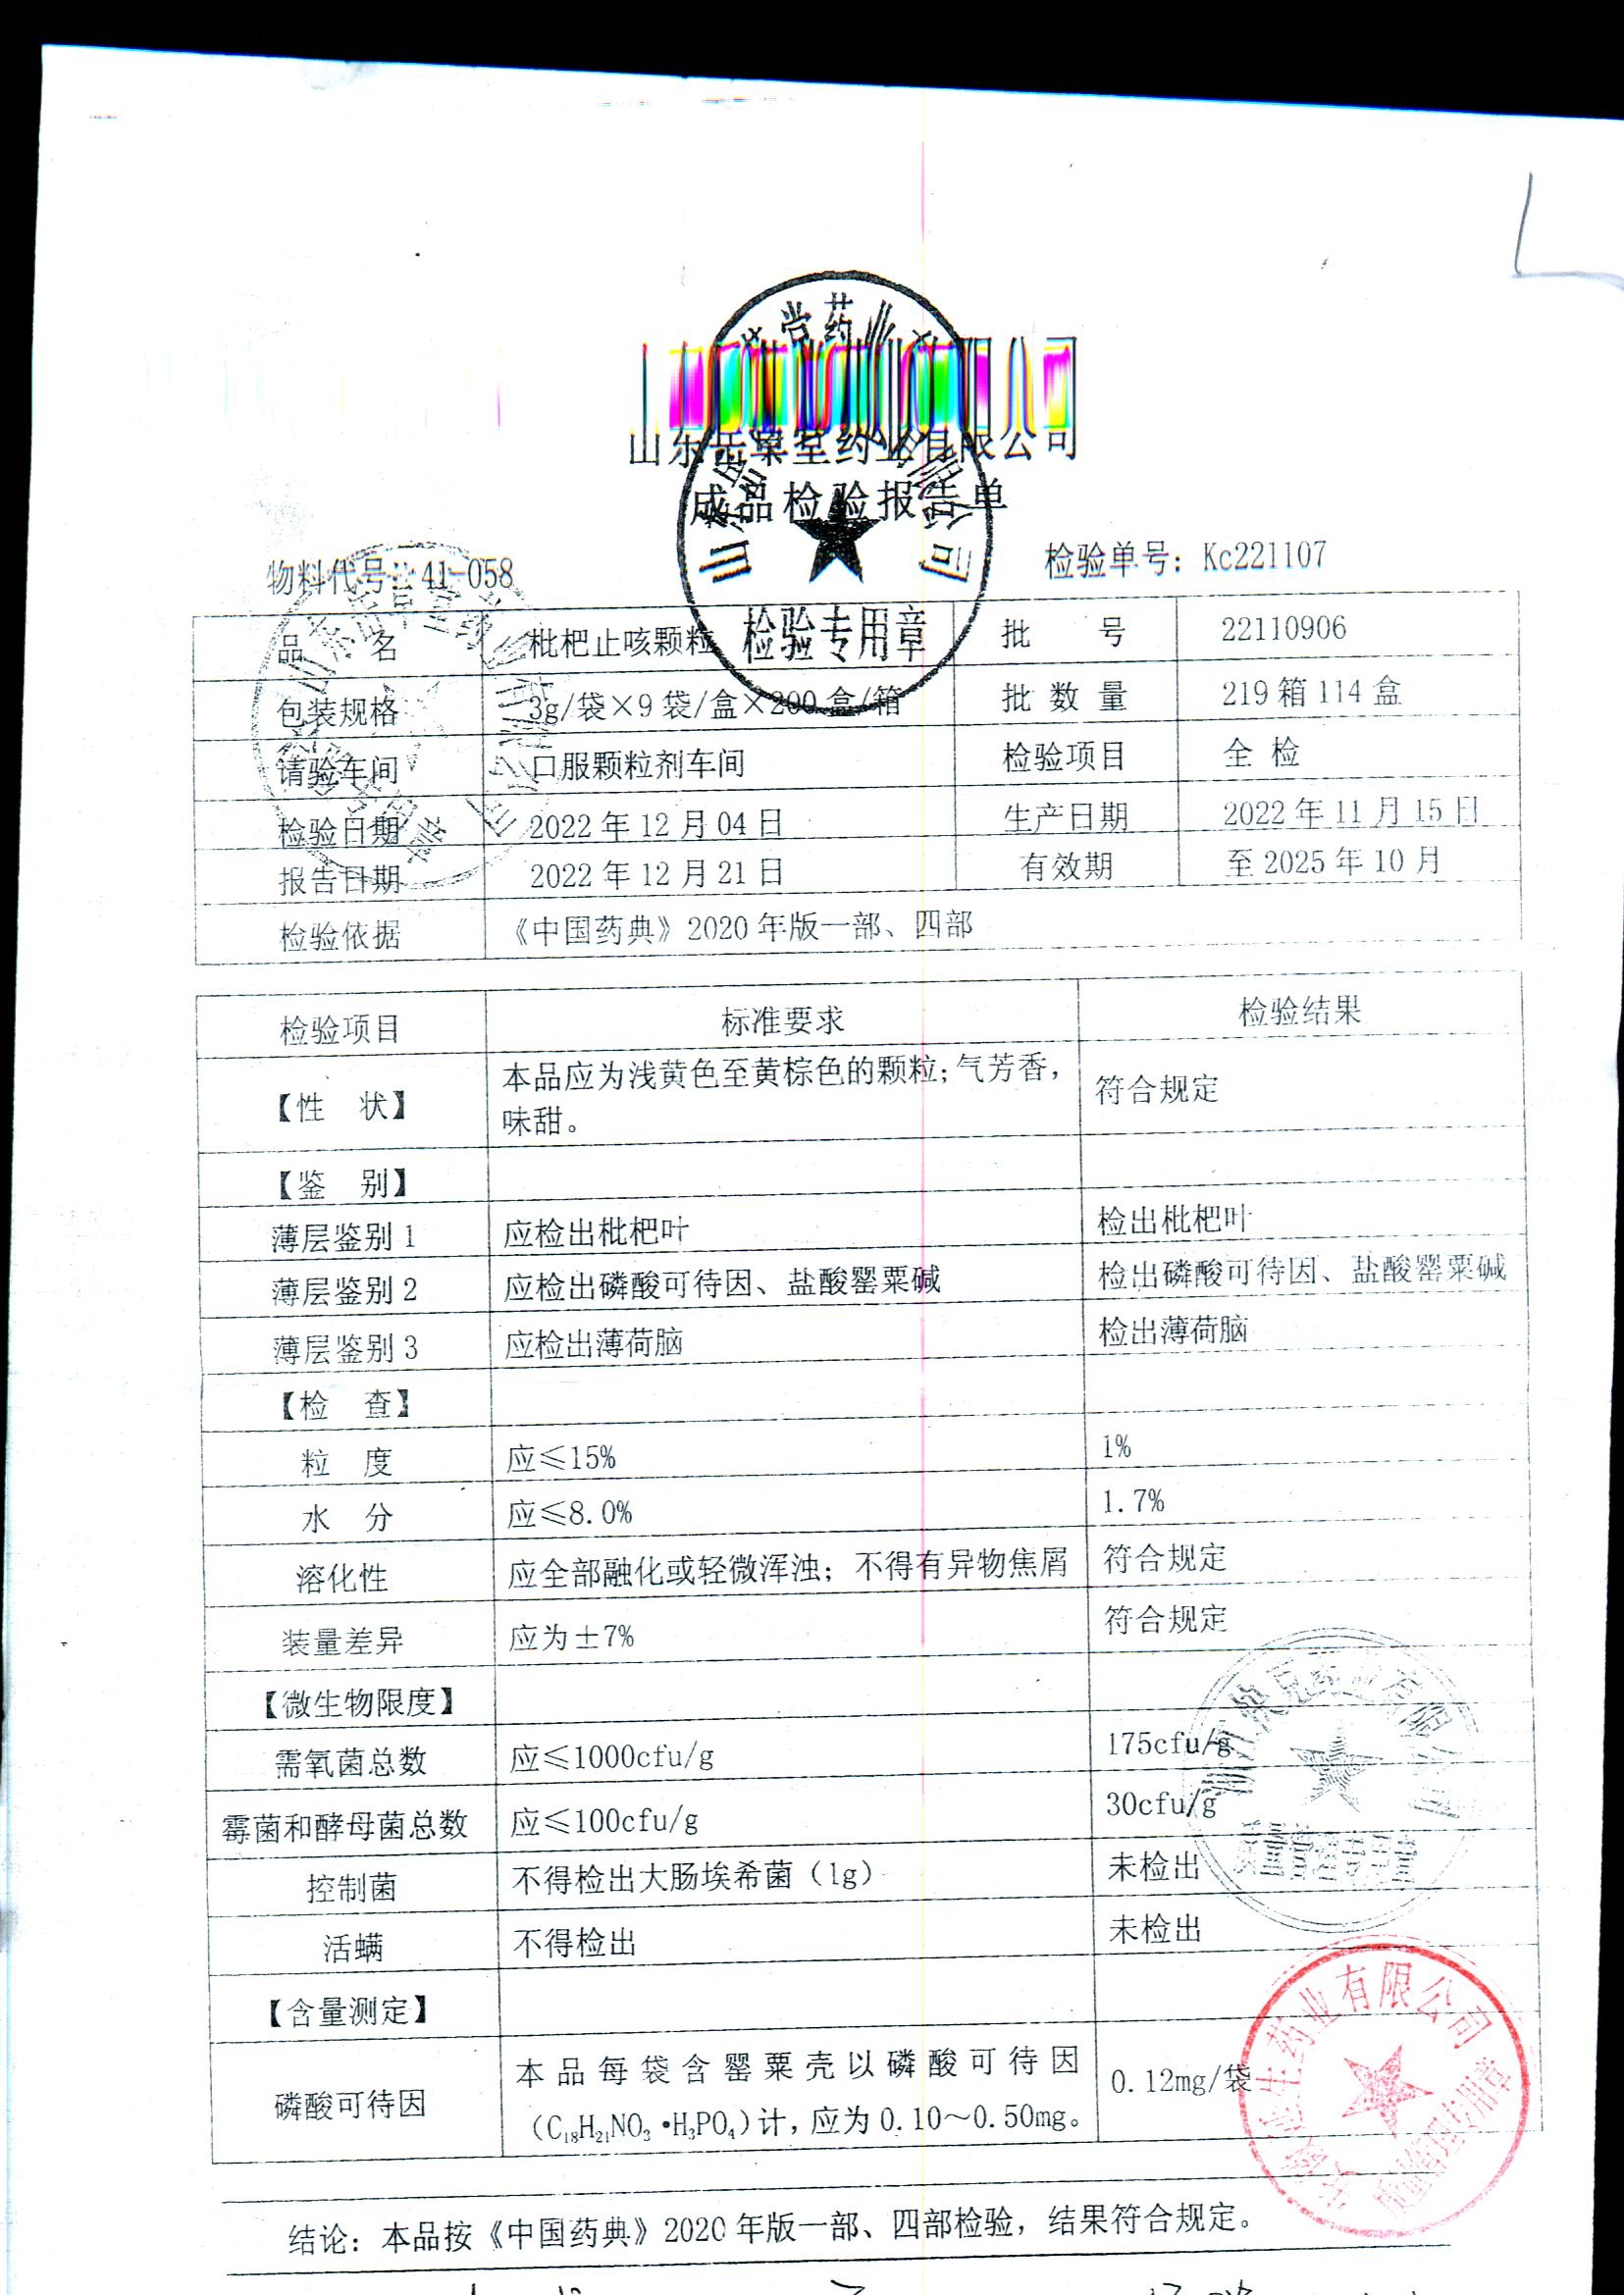 山东岳草堂药业有限公司
成品检验报告单
检验专用章
物料代号：41-058 检验单号：Kc221107
品 名 枇杷止咳颗粒 批 号 22110906
包装规格 3g/袋×9袋/盒×200盒/箱 批数量 219箱114盒
请验车间 口服颗粒剂车间 检验项目 全检
检验日期 2022年12月04日 生产日期 2022年11月15日
报告日期 2022年12月21日 有效期 至2025年10月
检验依据 《中国药典》2020年版一部、四部
检验项目 标准要求 检验结果
【性 状】 本品应为浅黄色至黄棕色的颗粒；气芳香，
味甜。 符合规定
【鉴 别】
薄层鉴别1 应检出枇杷叶 检出枇杷叶
薄层鉴别2 应检出磷酸可待因、盐酸罂粟碱 检出磷酸可待因、盐酸罂粟碱
薄层鉴别3 应检出薄荷脑 检出薄荷脑
【检 查】
粒 度 应≤15% 1%
水 分 应≤8.0% 1.7%
溶化性 应全部融化或轻微浑浊；不得有异物焦屑 符合规定
装量差异 应为±7% 符合规定
【微生物限度】
需氧菌总数 应≤1000cfu/g 175cfu/g
霉菌和酵母菌总数 应≤100cfu/g 30cfu/g
控制菌 不得检出大肠埃希菌（1g） 未检出
活螨 不得检出 未检出
质量管理专用章
【含量测定】
磷酸可待因 本品每袋含罂粟壳以磷酸可待因
（C₁₈H₂₁NO₃•H₃PO₄）计，应为0.10～0.50mg。 0.12mg/袋
生药业有限公司
质量管理专用章
结论：本品按《中国药典》2020年版一部、四部检验，结果符合规定。